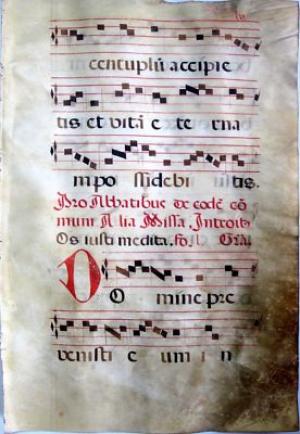 centuplū accipie
tis et vitā e te rna
mpo ssidebi istis.
Pro Abbatibus de codē cō
muni Alia Missa. Introit.
Os iusti medita. fo. Gra.
DO mine pre
venisti e um i n